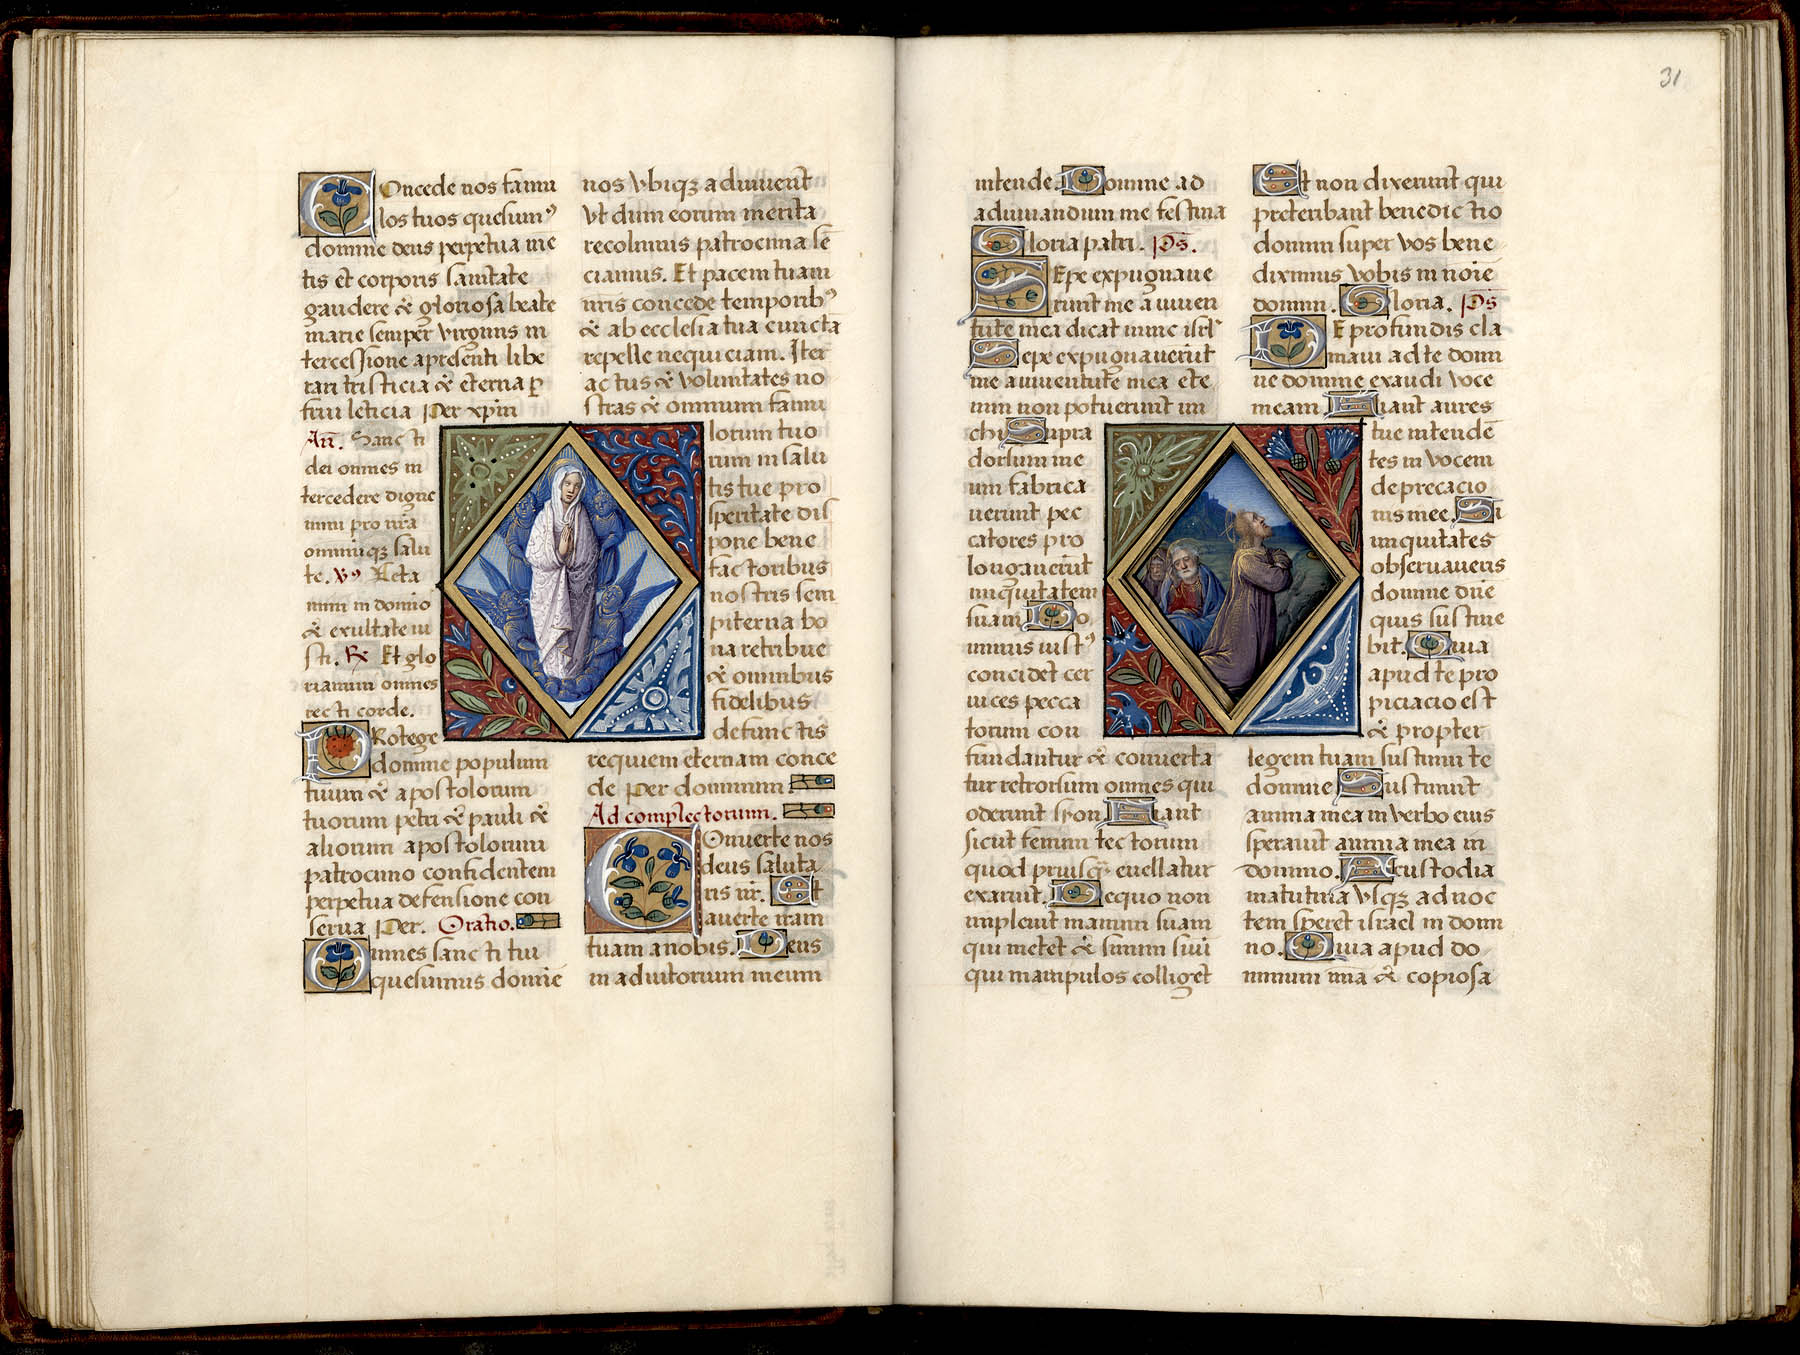 Concede nos famu
los tuos quesumꝰ
domine deus perpetua me
tis et corporis sanitate
gaudere & gloriosa beate
marie semper virginis in
tercessione a presenti libe
rari tristicia & eterna ꝑ
frui leticia Per xpm̄
An̄. Sancti
dei omnes in
tercedere digne
mini pro nr̄a
omniumqꝫ salu
te. Vꝰ Leta
mini in domino
& exultate iu
sti. ℟ Et glo
riamini omnes
recti corde.
Protege
domine populum
tuum & apostolorum
tuorum petri & pauli &
aliorum apostolorum
patrocinio confidentem
perpetua defensione con
serua Per. Oratio.
Omnes sancti tui
quesumus domine
nos vbiqꝫ adiuuent
Vt dum eorum merita
recolimus patrocinia sē
ciamus. Et pacem tuam
nr̄is concede temporibꝰ
& ab ecclesia tua cunctā
repelle nequiciam. Iter
actus & voluntates no
stras & omnium famu
lorum tuo
rum in salu
tis tue pro
speritate dis
pone bene
factoribus
nostris sem
piterna bo
na retribue
& omnibus
fidelibus
defunctis
requiem eternam conce
de Per dominum.
Ad completorum.
Conuerte nos
deus saluta
ris nr̄. Et
auerte iram
tuam a nobis. Deus
in adiutorium meum
31
intende. Domine ad
adiuuandum me festina
Gloria patri. Ps̄.
Sepe expugnaue
runt me a iuuen
tute mea dicat nunc isrl̄
Sepe expugnauerūt
me a iuuentute mea ete
nim non potuerunt m
chi Supra
dorsum me
um fabrica
uerunt pec
catores pro
longauerūt
iniquitatem
suam Do
minus iustꝰ
concidet cer
uices pecca
torum con
fundantur & conuerta
tur retrorsum omnes qui
oderunt syon Fiant
sicut fenum tectorum
quod priusqꝫ euellatur
exaruit. De quo non
impleuit manum suam
qui metet & sinum suū
qui manipulos colliget
Et non dixerunt qui
preteribant benedictio
domini super vos bene
diximus vobis in noīe
domini. Gloria. Ps̄
De profundis cla
maui ad te domi
ne domine exaudi voce
meam Fiant aures
tue intendē
tes in vocem
deprecacio
nis mee. Si
iniquitates
obseruaueris
domine dn̄e
quis sustine
bit. Quia
apud te pro
piciacio est
& propter
legem tuam sustinui te
domine Sustinuit
anima mea in verbo eius
sperauit anima mea in
domino. A custodia
matutina vsqꝫ ad noc
tem speret israel in domi
no. Quia apud do
minum mīa & copiosa